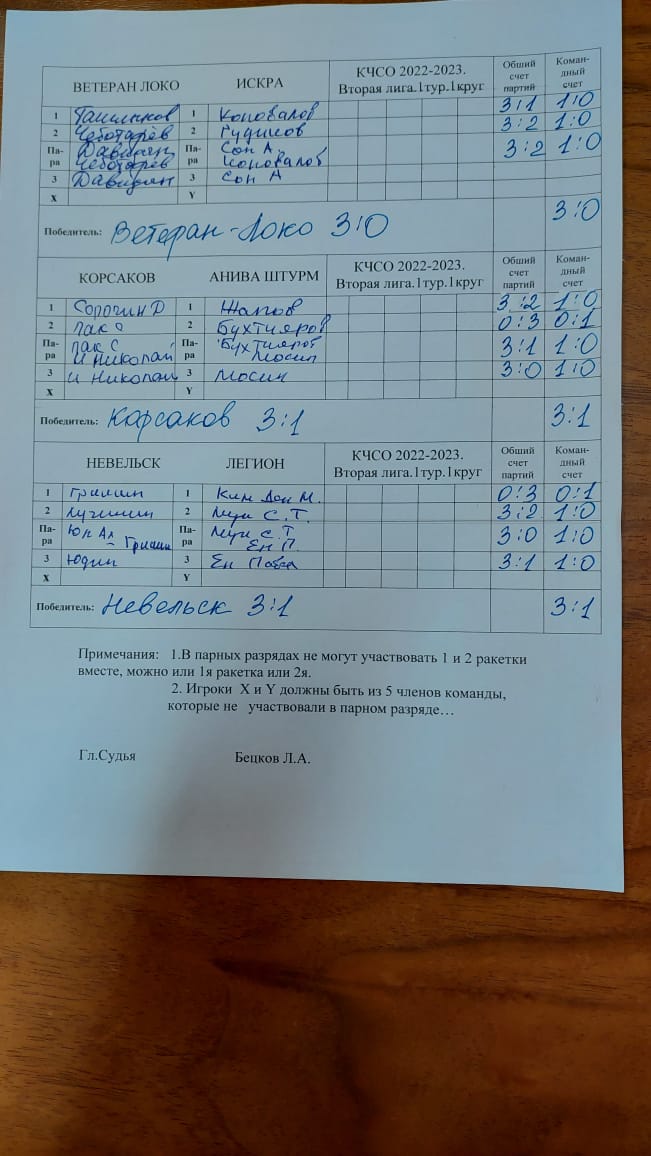 ВЕТЕРАН ЛОКО ИСКРА КЧСО 2022-2023. Вторая лига.1тур.1круг Общий счет партий Коман-дный счет
1 1 Коновалов 3:1 1:0
2 Чеботарёв 2 Гудисов 3:2 1:0
Па-ра Давидян Чеботарёв Па-ра Сон А. Коновалов 3:2 1:0
3 Давидян 3 Сон А
X Y
Победитель: Ветеран-Локо 3:0 3:0
КОРСАКОВ АНИВА ШТУРМ КЧСО 2022-2023. Вторая лига.1тур.1круг Общий счет партий Коман-дный счет
1 Сорочин Д 1 3:2 1:0
2 Пак С 2 Бухтияров 0:3 0:1
Па-ра Пак С И Николай Па-ра Бухтияров Мосин 3:1 1:0
3 И Николай 3 Мосин 3:0 1:0
X Y
Победитель: Корсаков 3:1 3:1
НЕВЕЛЬСК ЛЕГИОН КЧСО 2022-2023. Вторая лига.1тур.1круг Общий счет партий Коман-дный счет
1 Гришин 1 Ким Дон М. 0:3 0:1
2 Лучинин 2 С.Т. 3:2 1:0
Па-ра Юн Ал - Гришин Па-ра С.Т Ен П. 3:0 1:0
3 Юдин 3 Ен Павел 3:1 1:0
X Y
Победитель: Невельск 3:1 3:1
Примечания: 1.В парных разрядах не могут участвовать 1 и 2 ракетки
вместе, можно или 1я ракетка или 2я.
2. Игроки X и Y должны быть из 5 членов команды,
которые не участвовали в парном разряде…
Гл.Судья Бецков Л.А.